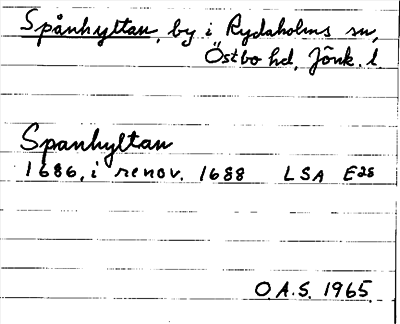 Spånhyltan, by i Rydaholms sn,
Östbo hd, Jönk. l.
Spanhyltan
1686, i renov. 1688 LSA E28
O.A.S. 1965.